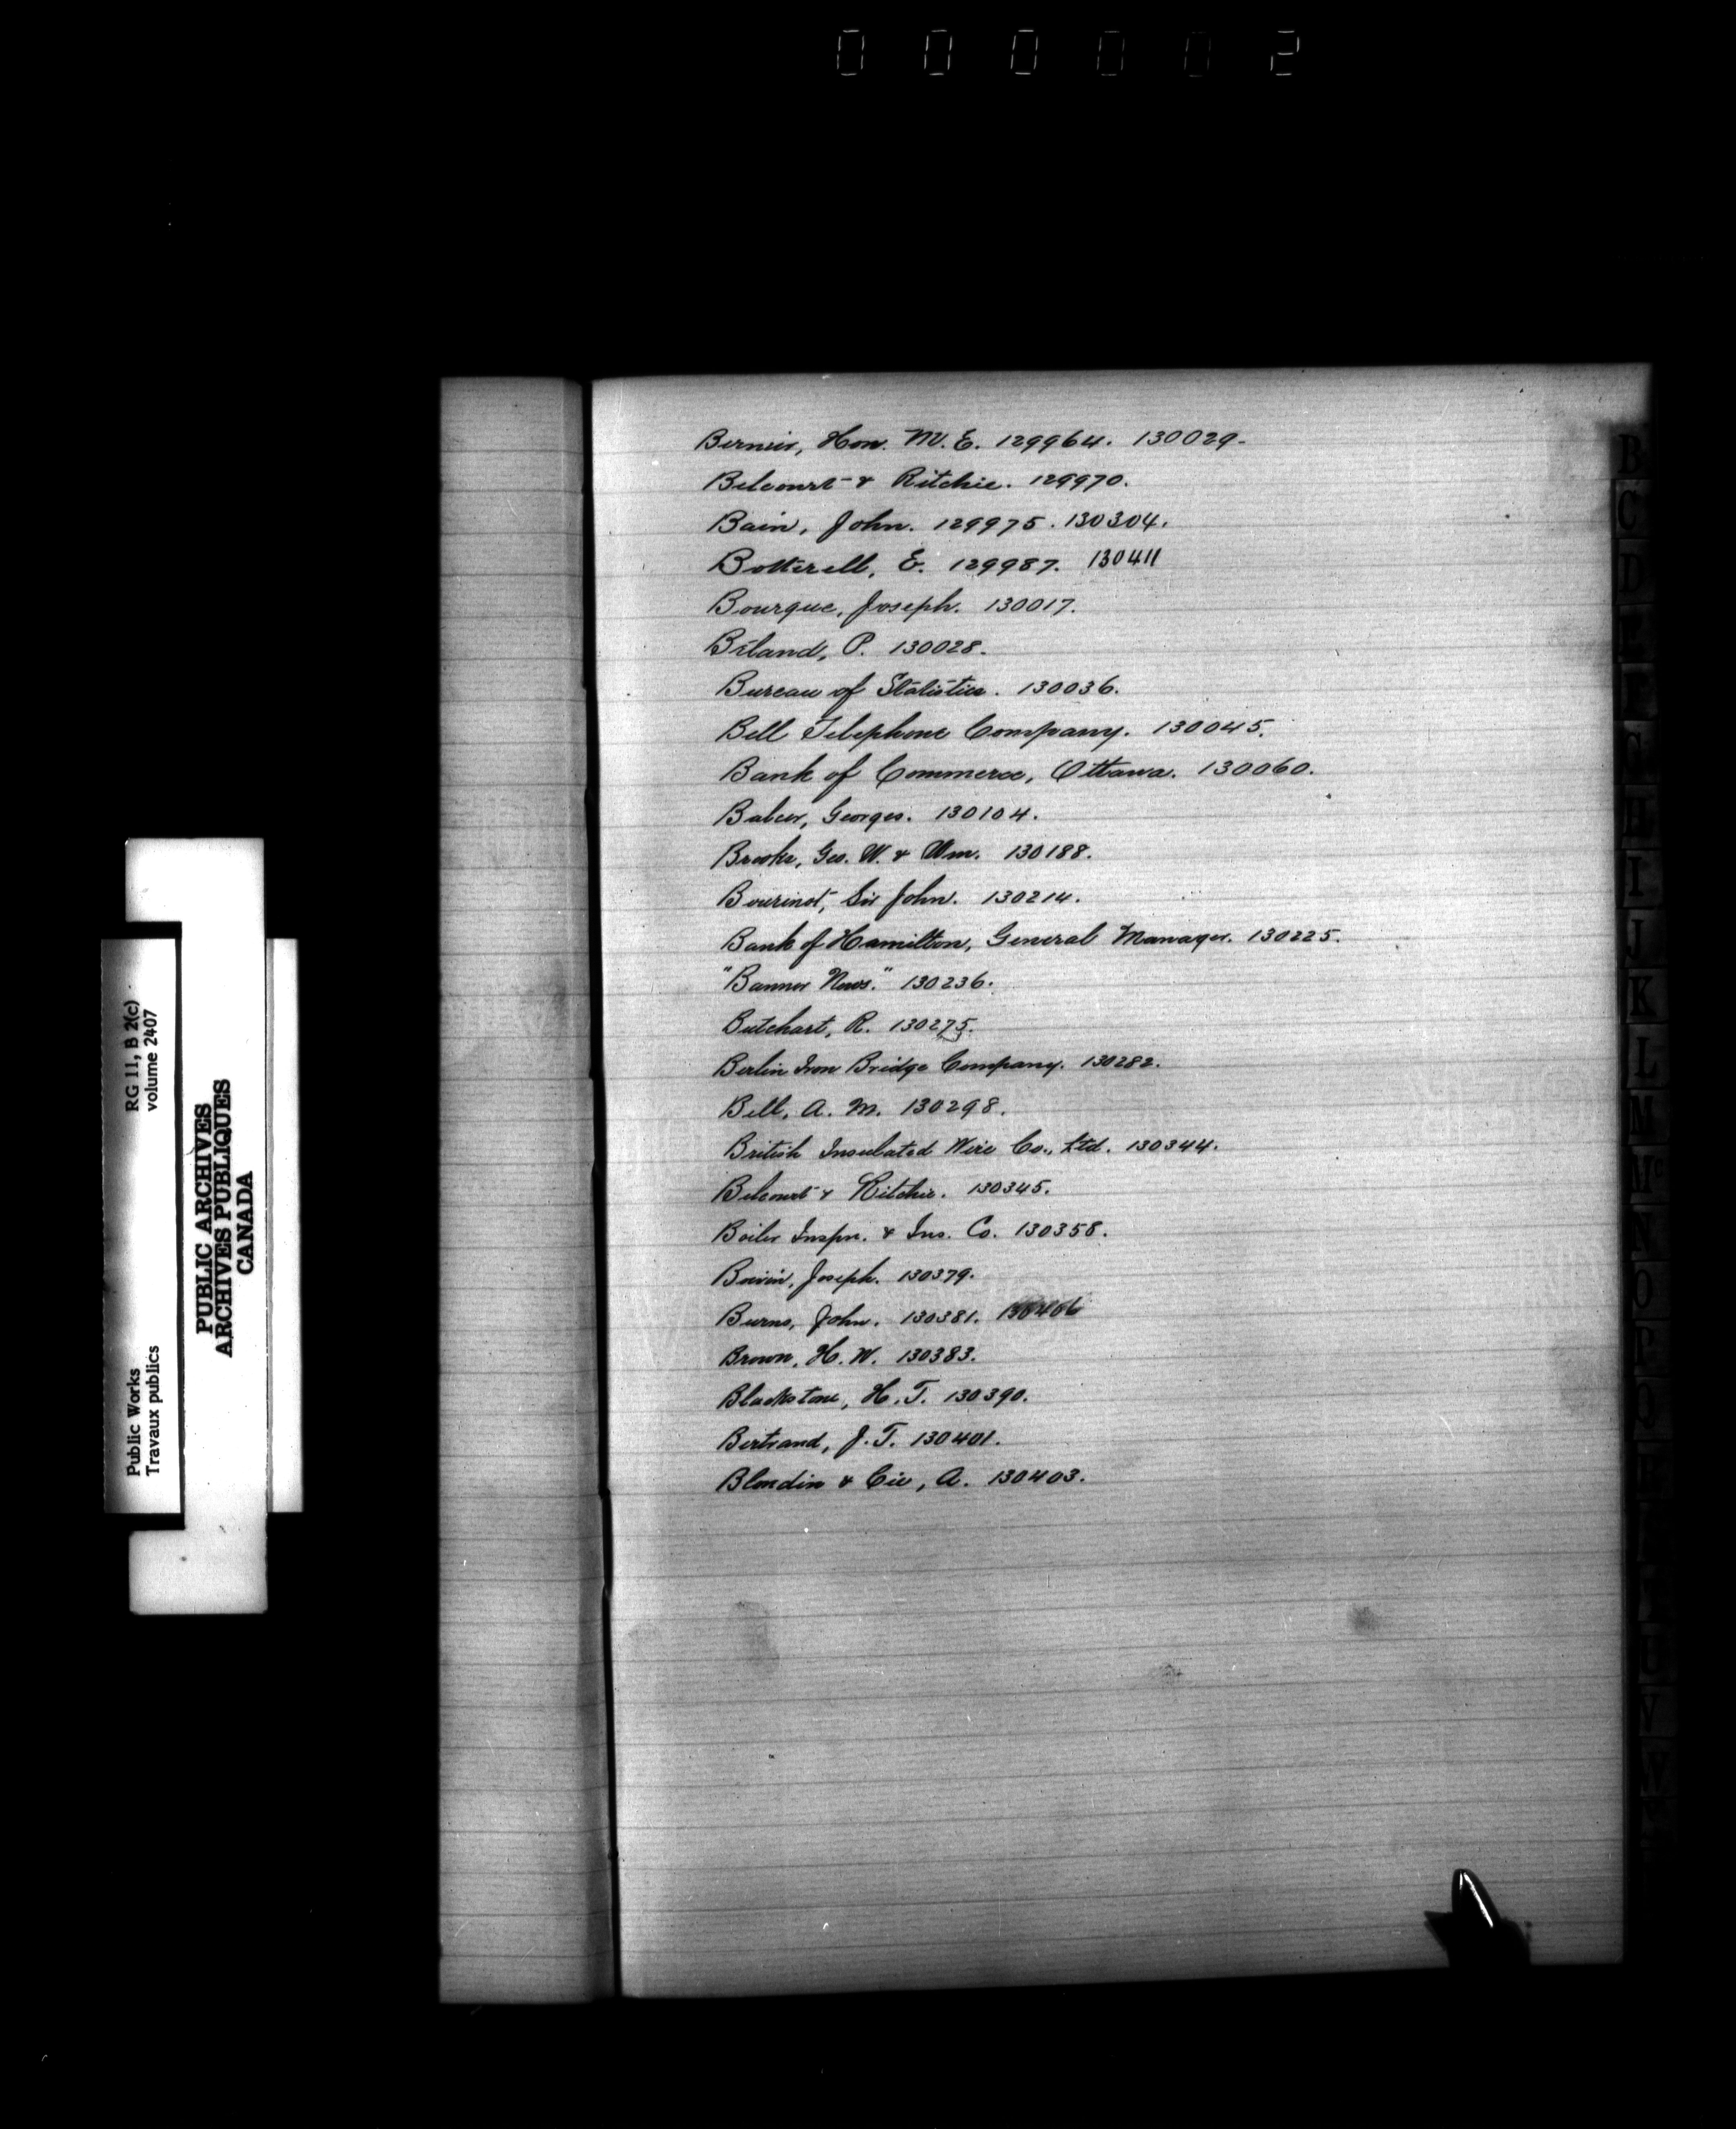 000002
Bernier, Hon. M. E. 129964. 130029.
Belcourt & Ritchie. 129970.
Bain, John. 129975. 130304.
Botterell, E. 129987. 130411
Bourque, Joseph. 130017.
Béland, P. 130028.
Bureau of Statistics. 130036.
Bell Telephone Company. 130045.
Bank of Commerce, Ottawa. 130060.
Balcer, Georges. 130104.
Brooks, Geo. W. & Wm. 130188.
Bourinot, Sir John. 130214.
Bank of Hamilton, General Manager. 130225.
"Banner News." 130236.
Butchart, R. 130275.
Berlin Iron Bridge Company. 130282.
Bell, A. M. 130298.
British Insulated Wire Co., Ltd. 130344.
Belcourt & Ritchie. 130345.
Boiler Inspn. & Ins. Co. 130358.
Boivin, Joseph. 130379.
Burns, John. 130381. 130406
Brown, H. W. 130383.
Blackstone, H. T. 130390.
Bertrand, J. T. 130401.
Blondin & Cie, A. 130403.
Public Works
Travaux publics
RG 11, B 2(c)
volume 2407
PUBLIC ARCHIVES
ARCHIVES PUBLIQUES
CANADA
B
C
D
H
I
J
K
L
M
Mc
O
P
V